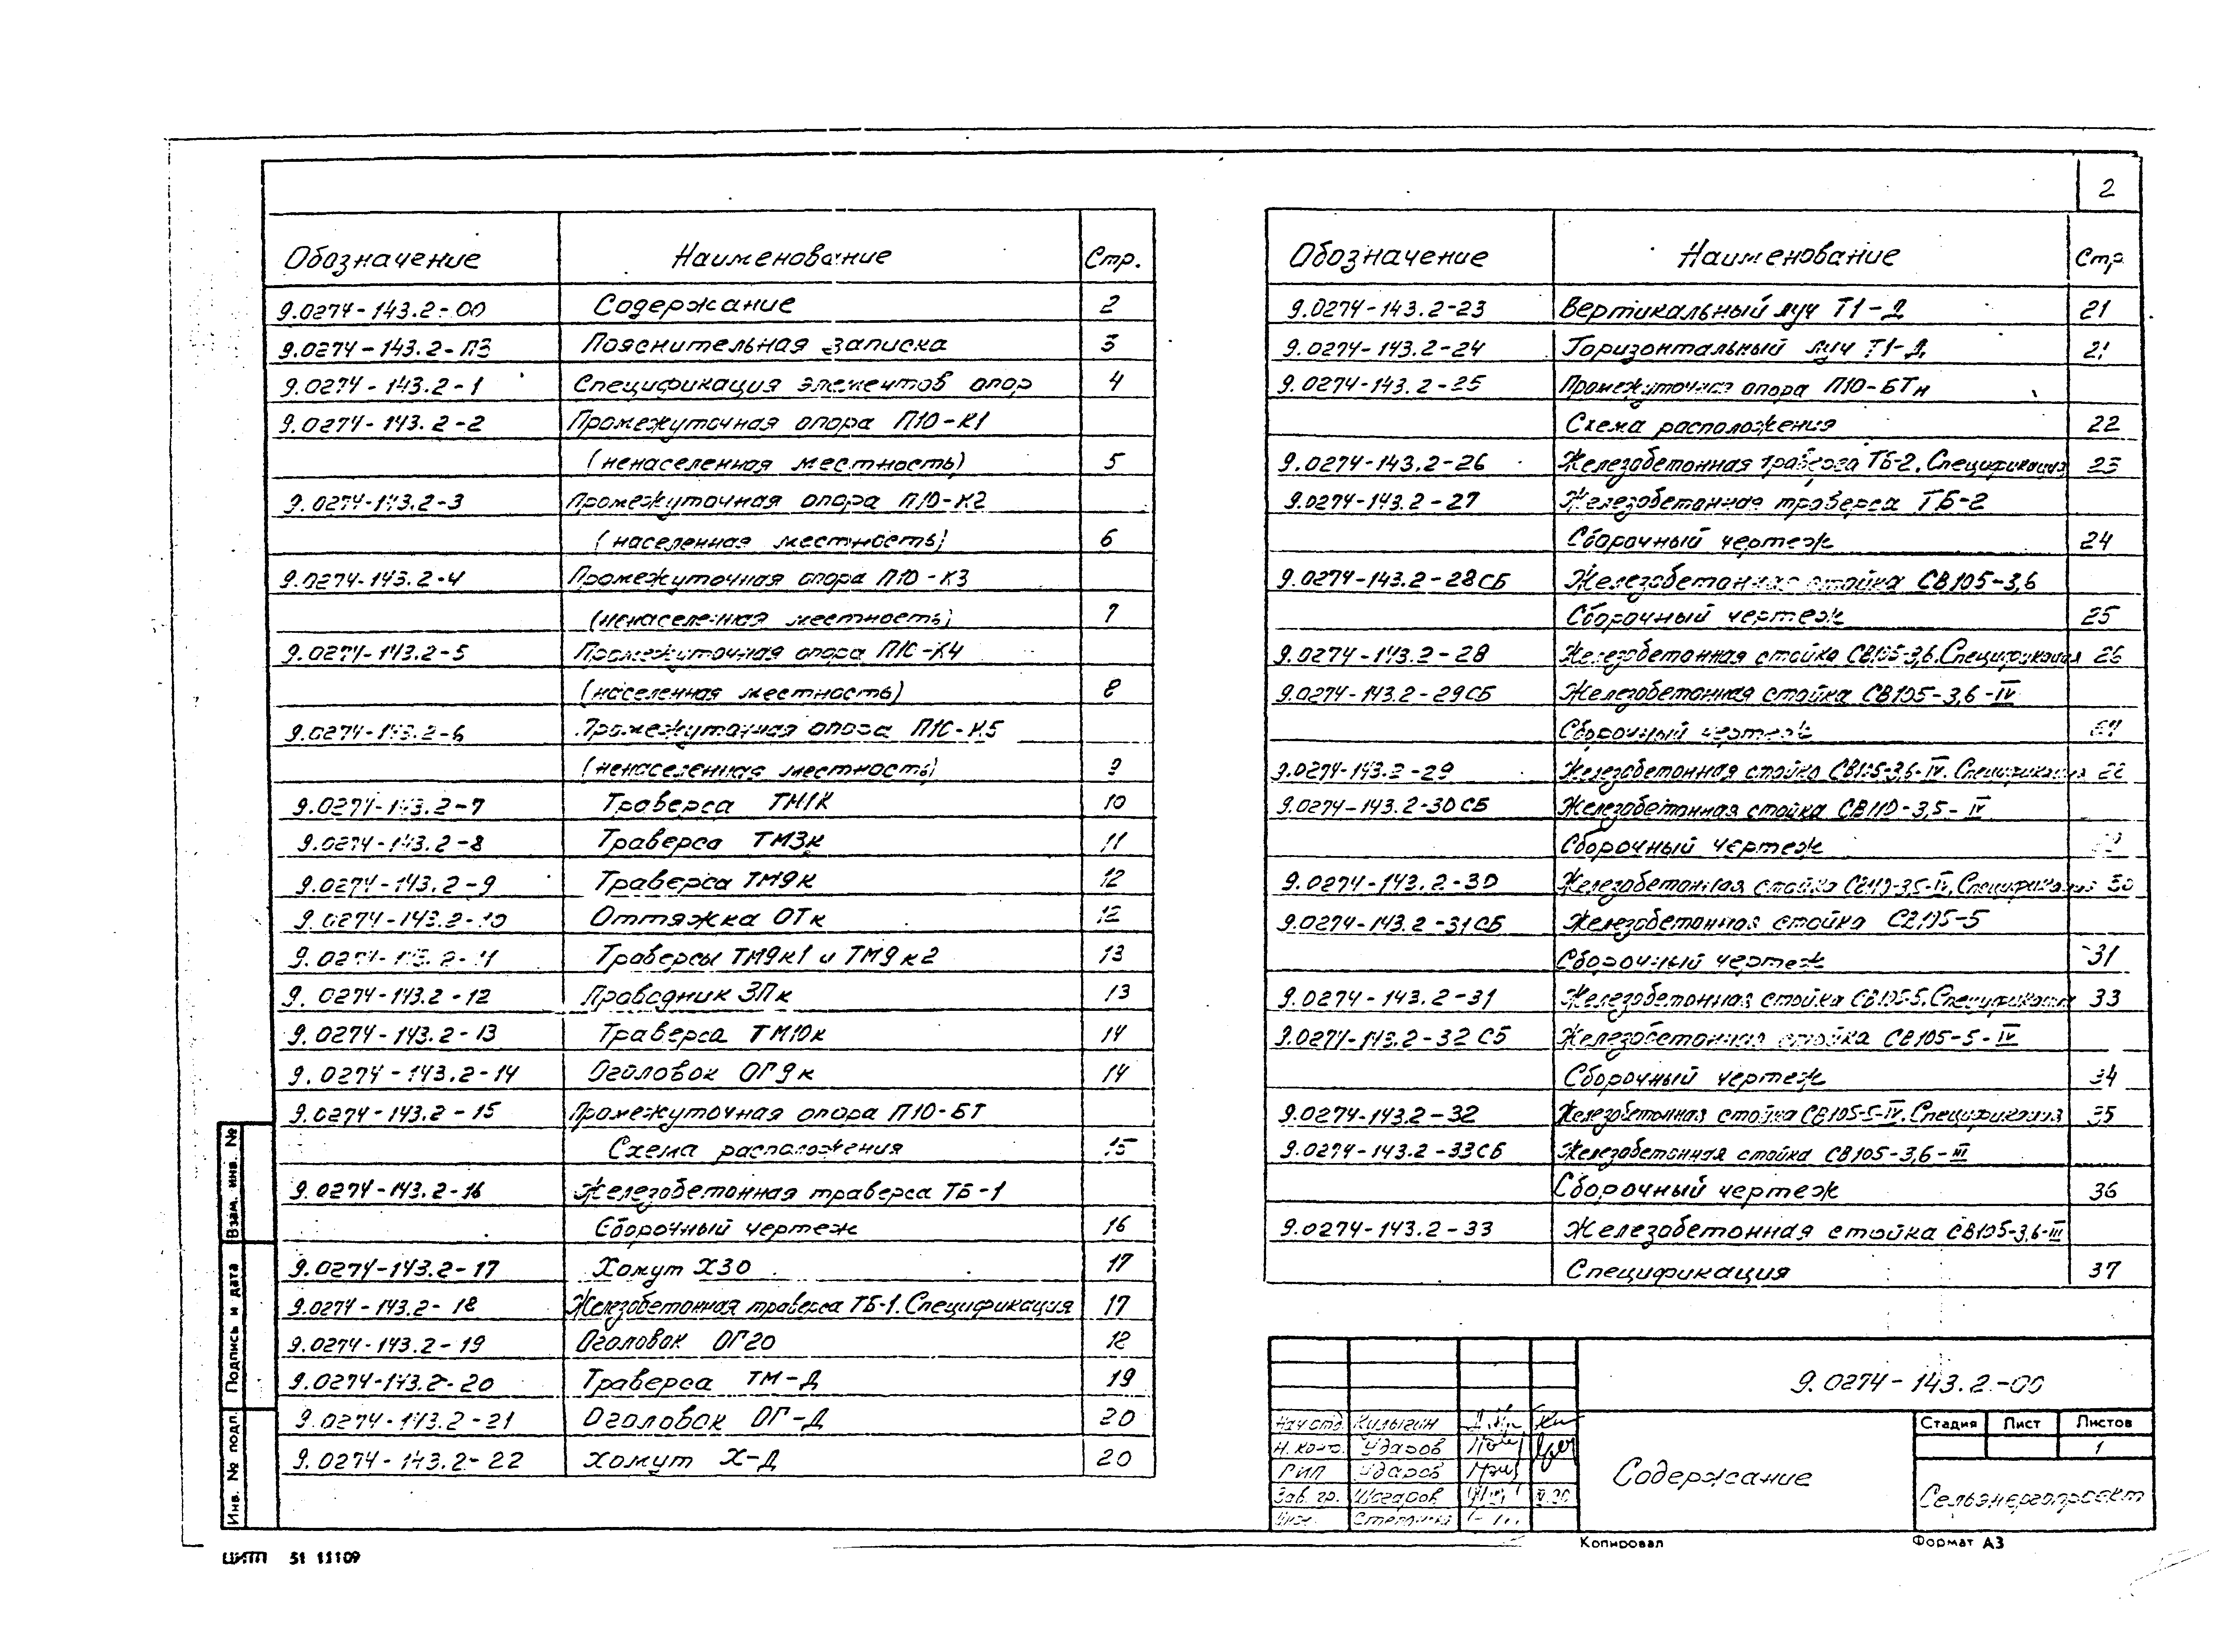 2
Обозначение Наименование Стр.
9.0274-143.2-00 Содержание 2
9.0274-143.2-ПЗ Пояснительная записка 3
9.0274-143.2-1 Спецификация элементов опор 4
9.0274-143.2-2 Промежуточная опора П10-К1
(ненаселенная местность) 5
9.0274-143.2-3 Промежуточная опора П10-К2
(населенная местность) 6
9.0274-143.2-4 Промежуточная опора П10-К3
(ненаселенная местность) 7
9.0274-143.2-5 Промежуточная опора П10-К4
(населенная местность) 8
9.0274-143.2-6 Промежуточная опора П10-К5
(ненаселенная местность) 9
9.0274-143.2-7 Траверса ТМ1К 10
9.0274-143.2-8 Траверса ТМ3к 11
9.0274-143.2-9 Траверса ТМ9к 12
9.0274-143.2-10 Оттяжка ОТк 12
9.0274-143.2-11 Траверсы ТМ9к1 и ТМ9к2 13
9.0274-143.2-12 Проводник ЗПк 13
9.0274-143.2-13 Траверса ТМ10к 14
9.0274-143.2-14 Оголовок ОГ9к 14
9.0274-143.2-15 Промежуточная опора П10-БТ
Схема расположения 15
9.0274-143.2-16 Железобетонная траверса ТБ-1
Сборочный чертеж 16
9.0274-143.2-17 Хомут Х30 17
9.0274-143.2-18 Железобетонная траверса ТБ-1. Спецификация 17
9.0274-143.2-19 Оголовок ОГ20 18
9.0274-143.2-20 Траверса ТМ-Д 19
9.0274-143.2-21 Оголовок ОГ-Д 20
9.0274-143.2-22 Хомут Х-Д 20
Обозначение Наименование Стр.
9.0274-143.2-23 Вертикальный луч Т1-Д 21
9.0274-143.2-24 Горизонтальный луч Т1-Д 21
9.0274-143.2-25 Промежуточная опора П10-БТн
Схема расположения 22
9.0274-143.2-26 Железобетонная траверса ТБ-2. Спецификация 23
9.0274-143.2-27 Железобетонная траверса ТБ-2
Сборочный чертеж 24
9.0274-143.2-28СБ Железобетонная стойка СВ105-3,6
Сборочный чертеж 25
9.0274-143.2-28 Железобетонная стойка СВ105-3,6. Спецификация 26
9.0274-143.2-29СБ Железобетонная стойка СВ105-3,6-IV
Сборочный чертеж
9.0274-143.2-29 Железобетонная стойка СВ105-3,6-IV. Спецификация 28
9.0274-143.2-30СБ Железобетонная стойка СВ110-3,5-IV
Сборочный чертеж
9.0274-143.2-30 Железобетонная стойка СВ110-3,5-IV. Спецификация 30
9.0274-143.2-31СБ Железобетонная стойка СВ105-5
Сборочный чертеж 31
9.0274-143.2-31 Железобетонная стойка СВ105-5. Спецификация 33
9.0274-143.2-32СБ Железобетонная стойка СВ105-5-IV
Сборочный чертеж 34
9.0274-143.2-32 Железобетонная стойка СВ105-5-IV. Спецификация 35
9.0274-143.2-33СБ Железобетонная стойка СВ105-3,6-III
Сборочный чертеж 36
9.0274-143.2-33 Железобетонная стойка СВ105-3,6-III
Спецификация 37
9.0274-143.2-00
Нач.отд. Кулыгин
Н. конт. Ударов
ГИП Ударов
Зав. гр. Шагаров
Содержание
Стадия Лист Листов
1
Сельэнергопроект
Копировал Формат А3
Взам. инв. №
Подпись и дата
Инв. № подл.
ЦИТП 51 11109